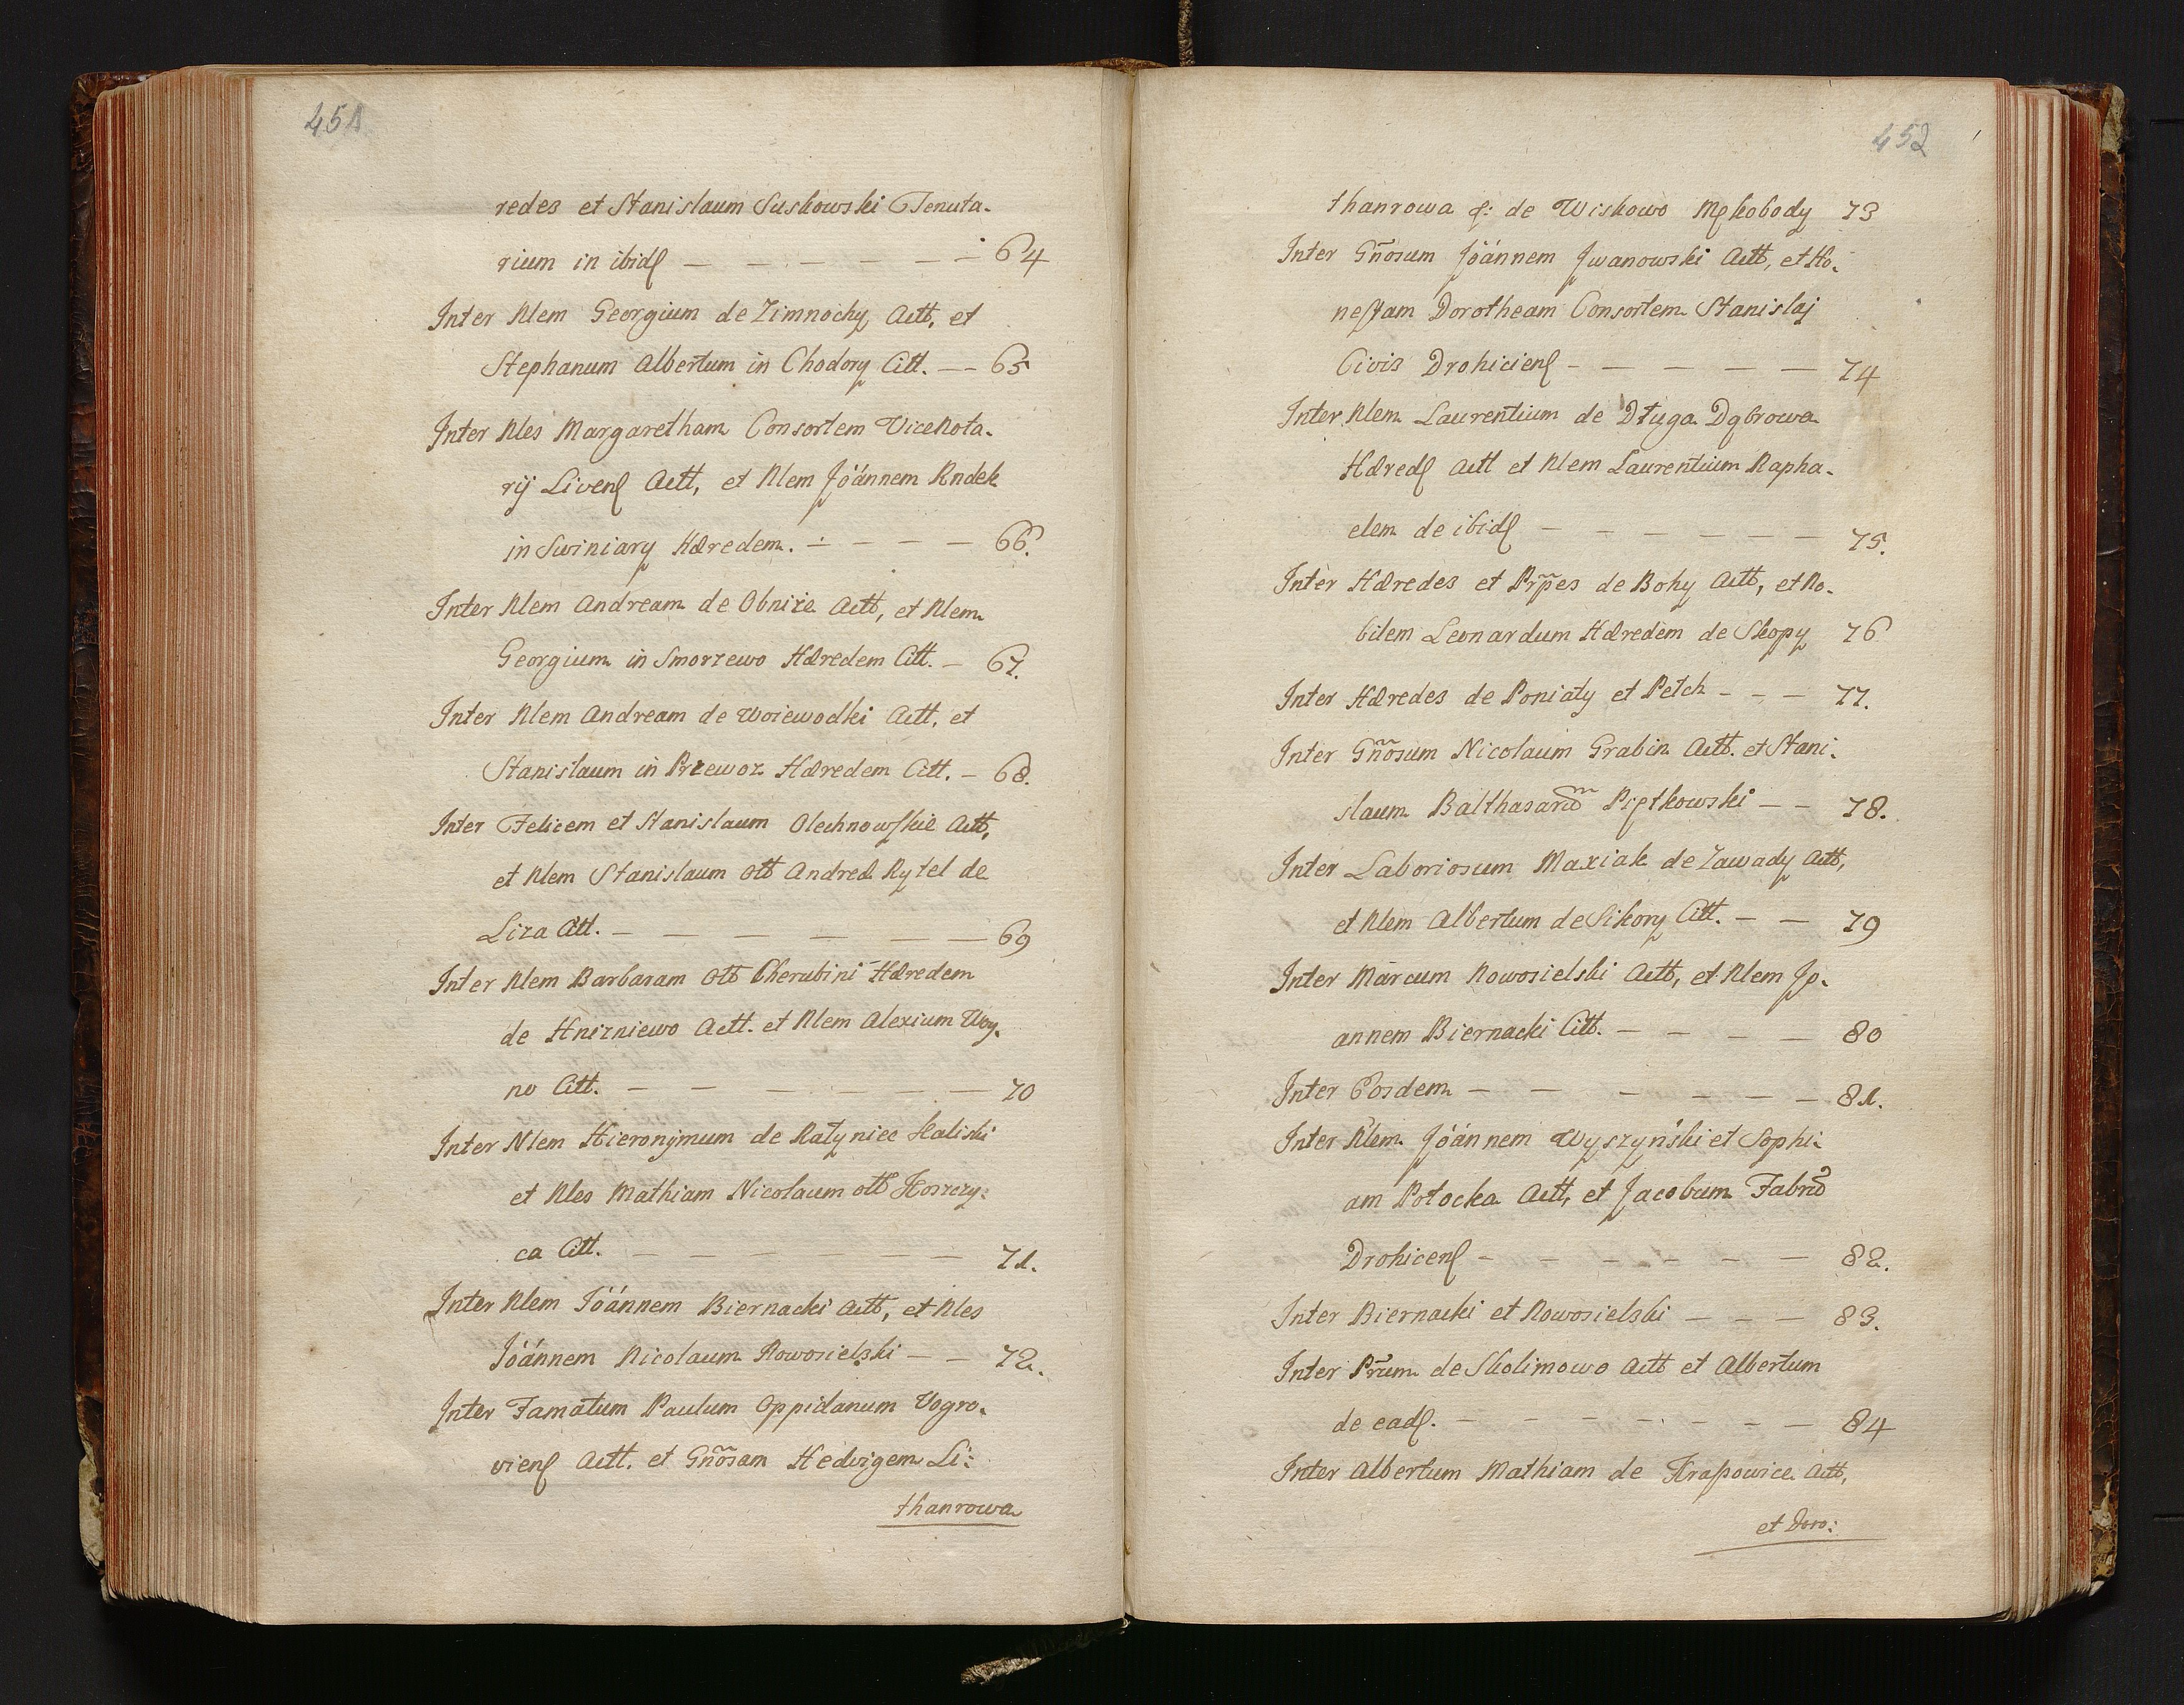 451
redes et Stanislaum Suskowski Tenuta-
rium in ibidę — — — — — — 64
Inter Nlem Georgium de Zimnochy Actt, et
Stephanum Albertum in Chodory Citt. — 65
Inter Nles Margaretham Consortem ViceNota-
rij Livenę Actt, et Nlem Jóánnem Kndek
in Swiniary Hæredem. — — — — 66.
Inter Nlem Andream de Obniże Actt, et Nlem
Georgium in Smorzewo Hæredem Citt. — 67.
Inter Nlem Andream de Woiewodki Actt, et
Stanislaum in Przewoz Hæredem Citt. — 68.
Inter Felicem et Stanislaum Olechnowskie Actt,
et Nlem Stanislaum Ott Andreæ Rytel de
Liza Citt. — — — — — — 69
Inter Nlem Barbaram Ott Cherubini Hæredem
de Hnizniewo Actt. et Nlem Alexium Woy-
no Citt. — — — — — — 70
Inter Nlem Hieronÿmum de Ratyniec Kaliski
et Nles Mathiam Nicolaum ott Koszczy-
ca Citt. — — — — — — 71.
Inter Nlem Jóánnem Biernacki Actt, et Nles
Jóánnem Nicolaum Nowosielski — — 72.
Inter Famatum Paulum Oppidanum Vogro-
vienę Actt. et Gñosam Hedvigem Li:
thanrowa
452
thanrowa ę: de Wiskowo Mękobody 73
Inter Gñosum Jóánnem Jwanowski Actt, et Ho-
nestam Dorotheam Consortem Stanislaj
Civis Drohicienę — — — — — 74
Inter Nlem Laurentium de Długa Dąbrowa
Hæredę Actt et Nlem Laurentium Rapha-
elem de ibidę — — — — — — 75.
Inter Hæredes et Pr̃pes de Bohy Actt, et No-
bilem Leonardum Hæredem de Skopy 76
Inter Hæredes de Poniaty et Petch — — — 77.
Inter Gñosum Nicolaum Grabin Actt. et Stani-
slaum Balthasarũ Piętkowski — — 78.
Inter Laboriosum Maxiak de Zawady Actt,
et Nlem Albertum de Sikory Citt. — — 79
Inter Marcum Nowosielski Actt, et Nlem Jo-
annem Biernacki Citt. — — — — 80
Inter Eosdem — — — — — — 81.
Inter Nlem Jóánnem Wyszyński et Sophi-
am Potocka Actt, et Jacobum Fabrũ
Drohicenę — — — — — — 82.
Inter Biernacki et Nowosielski — — — 83.
Inter Pr̃um de Skolimowo Actt et Albertum
de eadę. — — — — — — — 84
Inter Albertum Mathiam de Krapowice Actt,
et Doro: